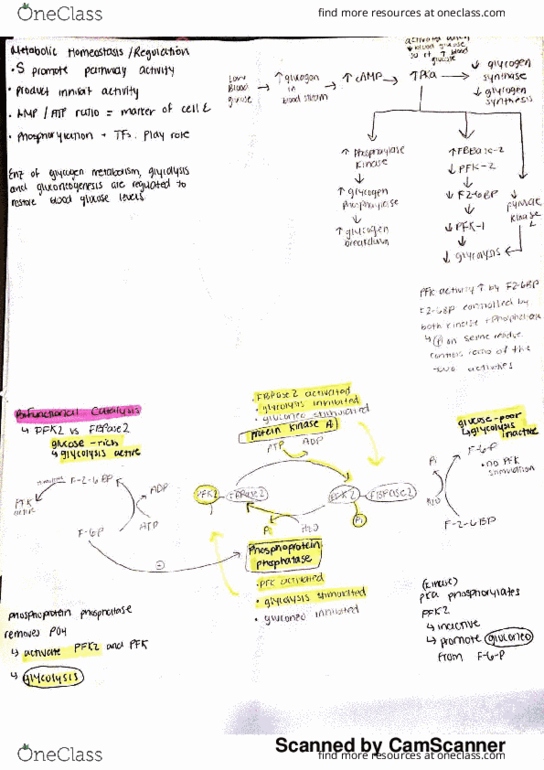 OneClass
find more resources at oneclass.com
Metabolic Homeostasis / Regulation
• S promote pathway activity
• product inhibit activity
• AMP / ATP ratio = marker of cell E
• Phosphorylation + TFs play role
Enz of glycogen metabolism, glycolysis
and gluconeogenesis are regulated to
restore blood glucose levels
Low
Blood
glucose
→ ↑ glucagon
in
blood stream
→ ↑ cAMP →
↑ PKa
→ ↓ glycogen
synthase
↓ glycogen
synthesis
↑ Phosphorylase
kinase
↓
↑ glycogen
phosphorylase
↓
↑ glycogen
breakdown
↑ FBPase-2
↓ PFK-2
↓
↓ F2-6BP
↓
↓ PFK-1
↓
↓ glycolysis
↓ pyruvate
kinase
PFK activity ↑ by F2-6BP
F2-6BP controlled by
both kinase + phosphatase
↳ Ⓟ on serine residue
controls ratio of the
two activities
Bifunctional Catalysis
↳ PFK2 vs FBPase2
glucose-rich
↳ glycolysis active
• FBPase2 activated
• glycolysis inhibited
• gluconeo stimulated
protein kinase A
ATP ADP
glucose-poor
↳ glycolysis
inactive
F-6-P
• no PFK
stimulation
Pi
H2O
F-2-6BP
F-2-6BP
PFK
ADP
ATP
F-6-P
PFK2 FBPase2
PFK2 FBPase2
Pi
Pi H2O
Phosphoprotein
phosphatase
• PFK activated
• glycolysis stimulated
• gluconeo inhibited
Phosphoprotein phosphatase
removes PO4
↳ activate PFK2 and PFK
↳ glycolysis
(kinase)
PKa phosphorylates
PFK2
↳ inactive
↳ promote gluconeo
from F-6-P
Scanned by CamScanner
OneClass
find more resources at oneclass.com